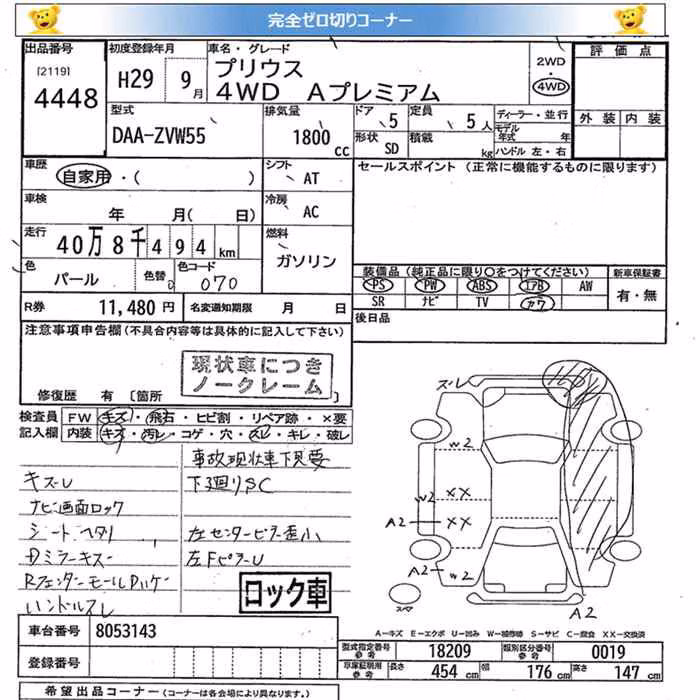 完全ゼロ切りコーナー
出品番号
[2119]
4448
初度登録年月
H29 9月
車名・グレード
プリウス
4WD Aプレミアム
2WD
・
4WD
評価点
外装 内装
型式
DAA-ZVW55
排気量
1800 cc
ドア 5
形状 SD
定員 5人
積載 kg
ディーラー・並行
モデル年式 年
ハンドル 左・右
車歴
自家用・( )
シフト AT
セールスポイント (正常に機能するものに限ります)
車検
年 月( 日)
冷房 AC
走行
40万8千494km
燃料
ガソリン
色
パール
色替
色コード
070
装備品(純正品に限り○をつけてください)
PS PW ABS エアB AW
SR ナビ TV カワ
新車保証書
有・無
R券 11,480 円
名変通知期限 月 日
後日品
注意事項申告欄(不具合内容等は具体的に記入して下さい)
現状車につき
ノークレーム
修復歴 有 [箇所 ]
検査員
記入欄
FW キズ・飛石・ヒビ割・リペア跡・×要
内装 キズ・汚レ・コゲ・穴・スレ・キレ・破レ
事故現状車下見要
キズU
下廻りSC
ナビ画面ロック
シートヘタリ
左センターピラー歪小
左FピラーU
ハンドルスレ
ロック車
ズレ
W2
W2
XX
XX
A2
A2
W2
A2
スペア
A-キズ E-エクボ U-凹み W-補修跡 S-サビ C-腐食 XX-交換済
車台番号 8053143
登録番号
型式指定番号
参考
18209
類別区分番号
参考
0019
車庫証明用
参考
長さ 454 cm
幅 176 cm
高さ 147 cm
希望出品コーナー(コーナーは各会場により異なります。)